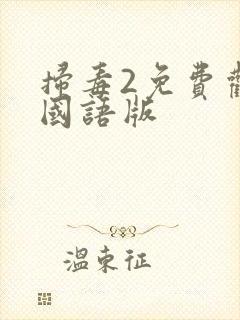 掃毒2免費
國語版
溫東征